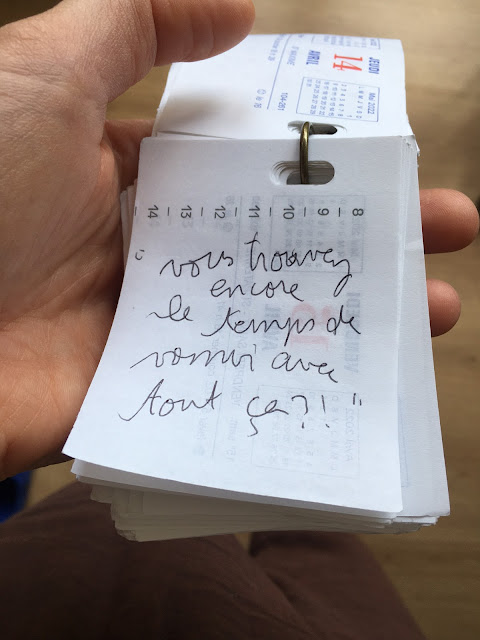 JEUDI
14
AVRIL
Mai 2022
104-261
14 – 13 – 12 – 11 – 10 – 9 – 8
"vous trouvez
encore
le temps de
vomir avec
tout ça?!"